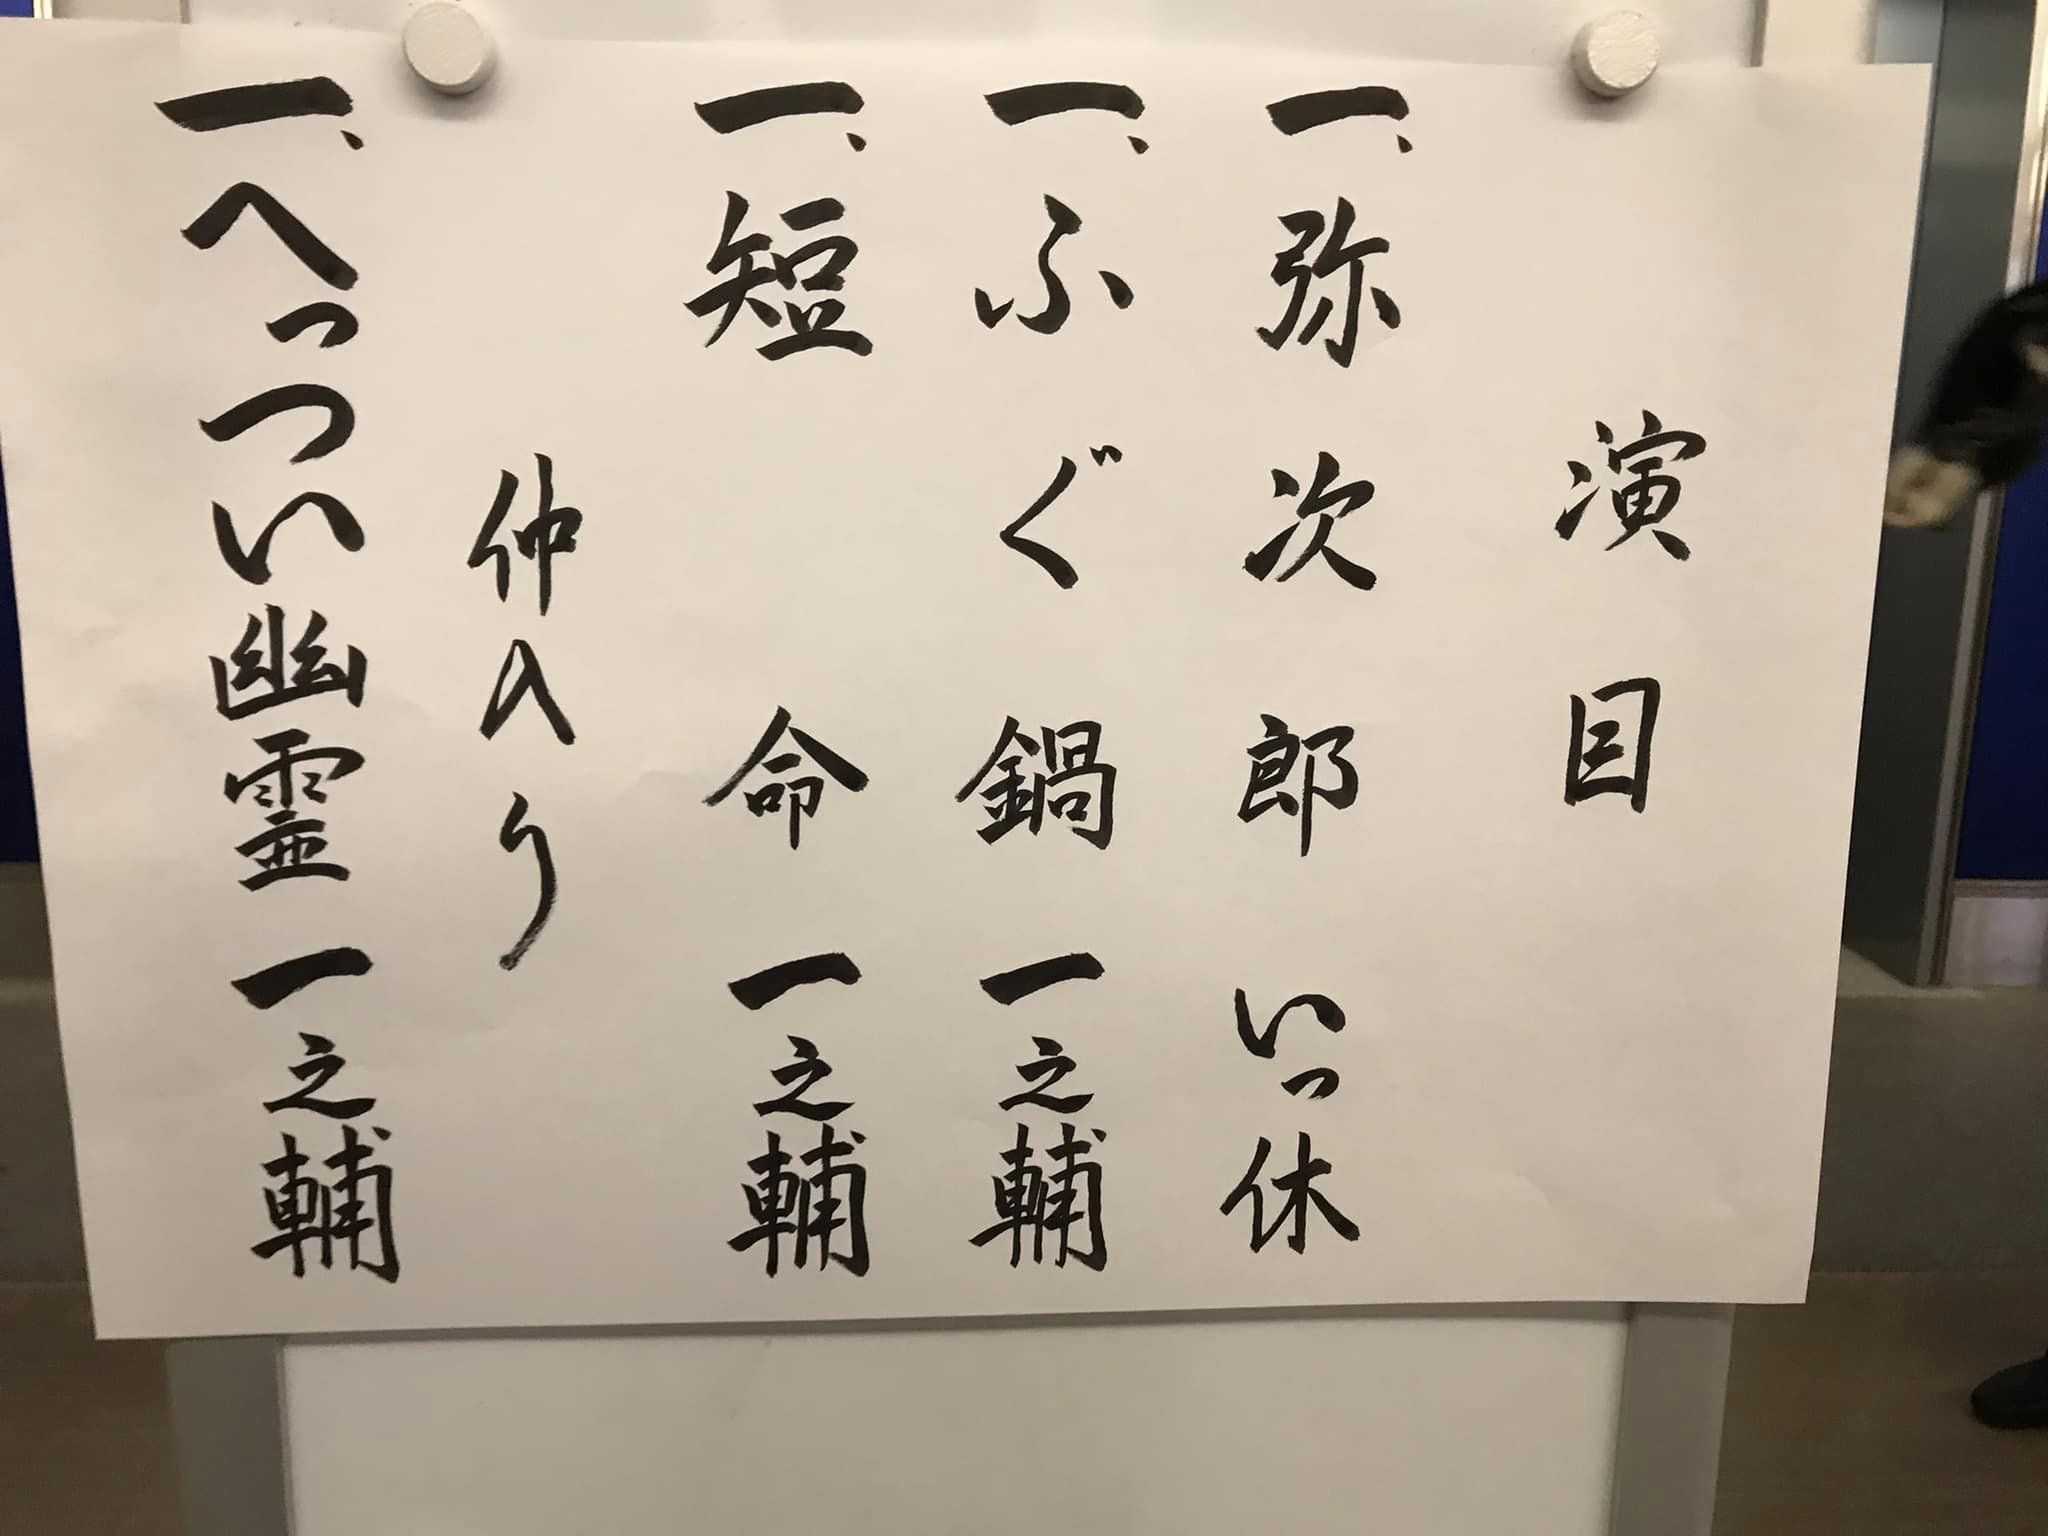 演目
一、弥次郎 いっ休
一、ふぐ鍋 一之輔
一、短命 一之輔
仲入り
一、へっつい幽霊 一之輔